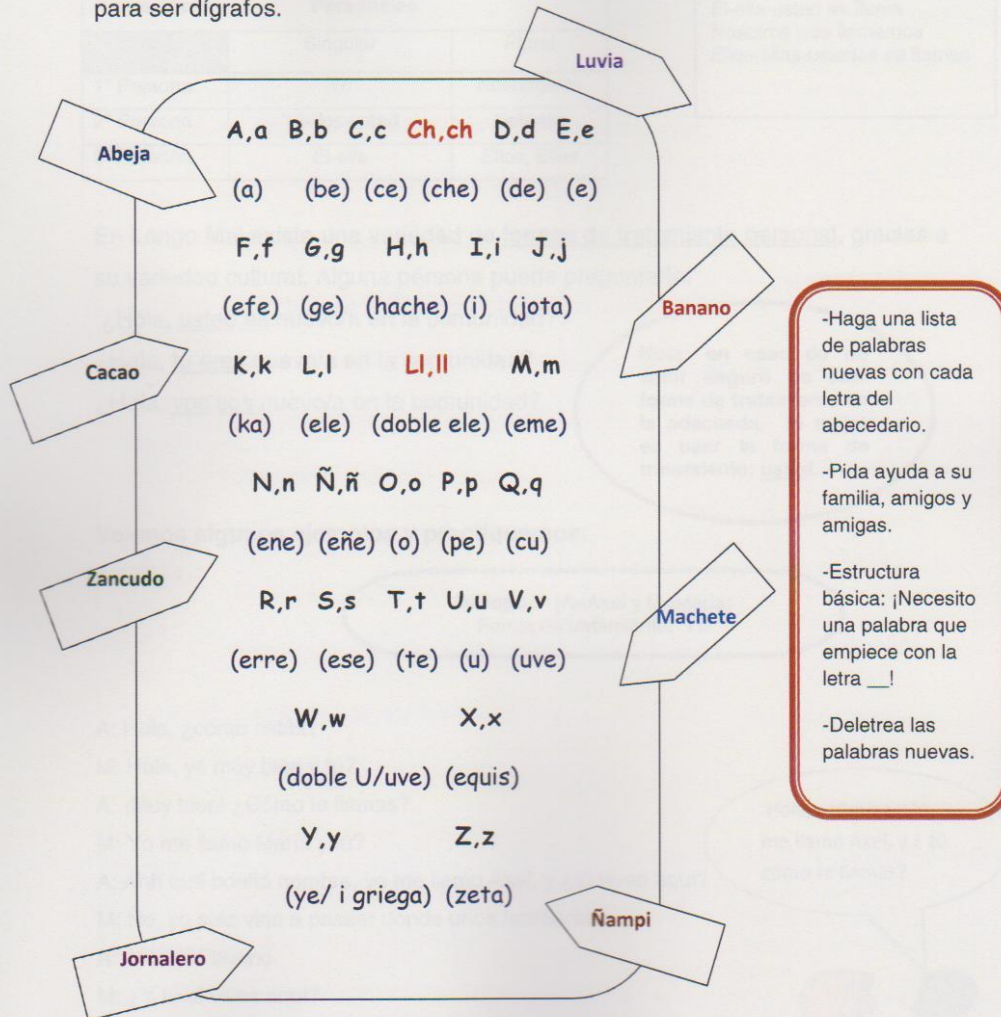 para ser dígrafos.
Luvia
Abeja
A,a B,b C,c Ch,ch D,d E,e
(a) (be) (ce) (che) (de) (e)
F,f G,g H,h I,i J,j
(efe) (ge) (hache) (i) (jota)
Banano
Cacao
K,k L,l Ll,ll M,m
(ka) (ele) (doble ele) (eme)
N,n Ñ,ñ O,o P,p Q,q
(ene) (eñe) (o) (pe) (cu)
Zancudo
R,r S,s T,t U,u V,v
Machete
(erre) (ese) (te) (u) (uve)
W,w X,x
(doble U/uve) (equis)
Y,y Z,z
(ye/ i griega) (zeta)
Ñampi
Jornalero
-Haga una lista
de palabras
nuevas con cada
letra del
abecedario.
-Pida ayuda a su
familia, amigos y
amigas.
-Estructura
básica: ¡Necesito
una palabra que
empiece con la
letra __!
-Deletrea las
palabras nuevas.